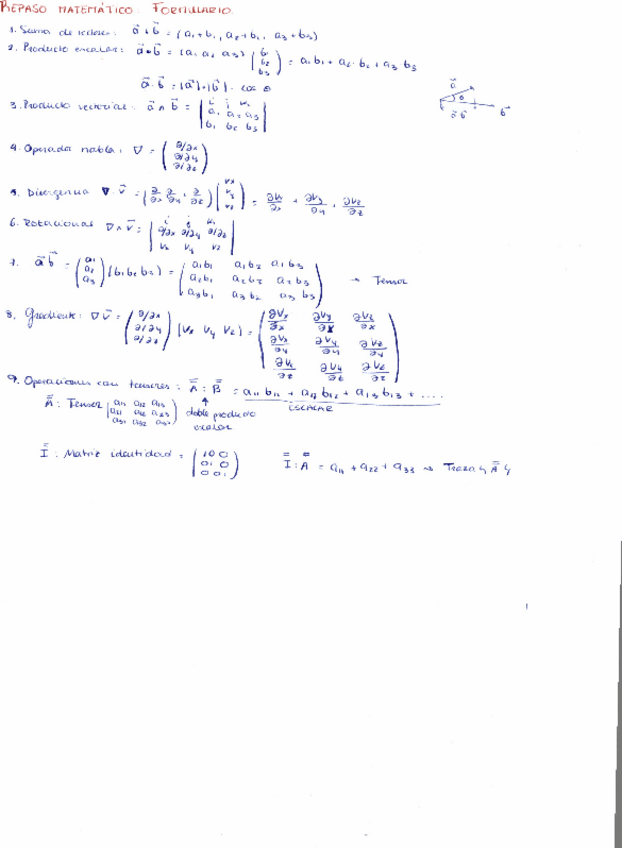 REPASO MATEMÁTICO: FORMULARIO.
1. Suma de vectores: a⃗ + b⃗ = (a₁+b₁, a₂+b₂, a₃+b₃)
2. Producto escalar: a⃗ • b⃗ = (a₁ a₂ a₃) (b₁ b₂ b₃) = a₁b₁ + a₂·b₂ + a₃ b₃
a⃗ · b⃗ = |a⃗|·|b⃗| · cos θ
a⃗ θ a⃗·b⃗ b⃗
3. Producto vectorial: a⃗ ∧ b⃗ = | i j k ; a₁ a₂ a₃ ; b₁ b₂ b₃ |
4. Operada nabla: ∇ = (∂/∂x ; ∂/∂y ; ∂/∂z)
5. Divergencia ∇ · v⃗ = (∂/∂x ∂/∂y , ∂/∂z) (vx ; vy ; vz) = ∂vx/∂x + ∂vy/∂y + ∂vz/∂z
6. Rotacional ∇ ∧ v⃗ = | i j k ; ∂/∂x ∂/∂y ∂/∂z ; vx vy vz |
7. a⃗ b⃗ = (a₁ ; a₂ ; a₃) (b₁ b₂ b₃) = (a₁b₁ a₁b₂ a₁b₃ ; a₂b₁ a₂b₂ a₂b₃ ; a₃b₁ a₃b₂ a₃b₃) → Tensor
8. Gradiente: ∇ v⃗ = (∂/∂x ; ∂/∂y ; ∂/∂z) (vx vy vz) = (∂vx/∂x ∂vy/∂x ∂vz/∂x ; ∂vx/∂y ∂vy/∂y ∂vz/∂y ; ∂vx/∂z ∂vy/∂z ∂vz/∂z)
9. Operaciones con tensores: A̿ : B̿ = a₁₁ b₁₁ + a₁₂ b₁₂ + a₁₃ b₁₃ + ....
ESCALAR
A̿ : Tensor (a₁₁ a₁₂ a₁₃ ; a₂₁ a₂₂ a₂₃ ; a₃₁ a₃₂ a₃₃) ↑ doble producto
escalar
I̿ : Matriz identidad = (1 0 0 ; 0 1 0 ; 0 0 1) I̿ : A̿ = a₁₁ + a₂₂ + a₃₃ → Traza { A̿ }
1